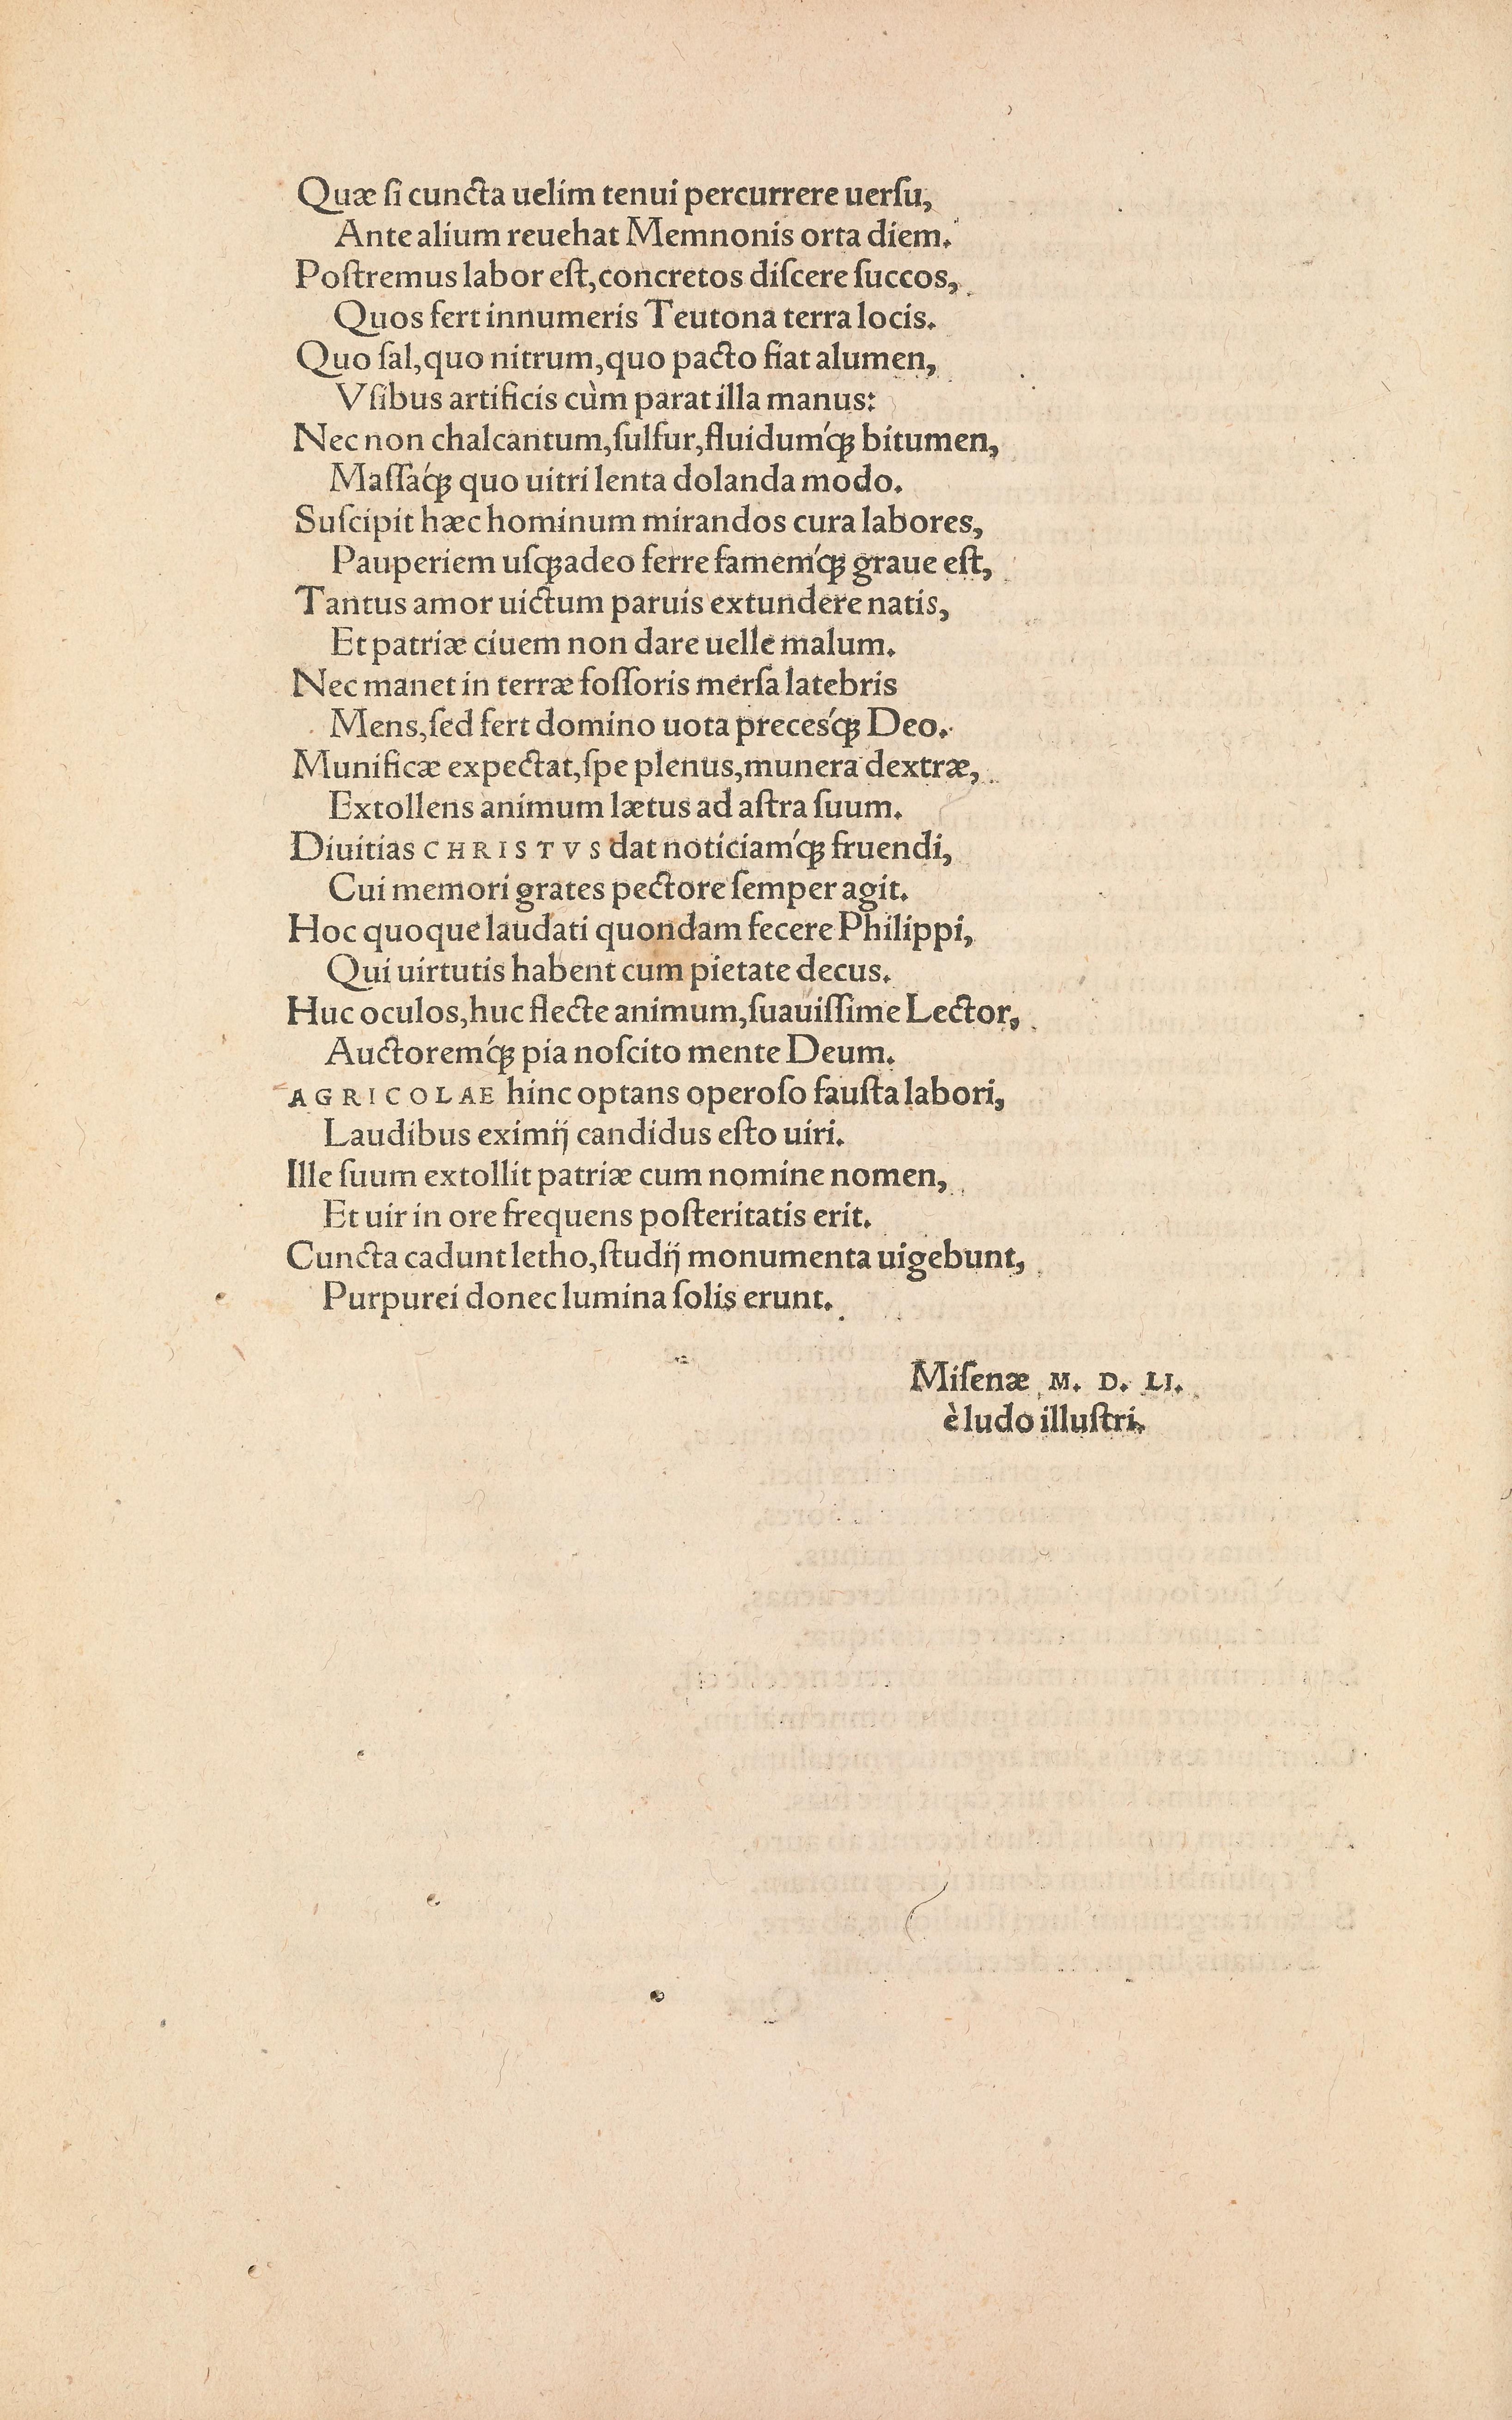 Quæ ſi cuncta uelim tenui percurrere uerſu,
Ante alium reuehat Memnonis orta diem.
Poſtremus labor eſt, concretos diſcere ſuccos,
Quos fert innumeris Teutona terra locis.
Quo ſal, quo nitrum, quo pacto fiat alumen,
Vſibus artificis cùm parat illa manus:
Nec non chalcantum, ſulfur, fluidumq́ꝫ bitumen,
Maſſaq́ꝫ quo uitri lenta dolanda modo.
Suſcipit hæc hominum mirandos cura labores,
Pauperiem uſqꝫadeo ferre famemq́ꝫ graue eſt,
Tantus amor uictum paruis extundere natis,
Et patriæ ciuem non dare uelle malum.
Nec manet in terræ foſſoris merſa latebris
Mens, ſed fert domino uota precesq́ꝫ Deo.
Munificæ expectat, ſpe plenus, munera dextræ,
Extollens animum lætus ad aſtra ſuum.
Diuitias CHRISTVS dat noticiamq́ꝫ fruendi,
Cui memori grates pectore ſemper agit.
Hoc quoque laudati quondam fecere Philippi,
Qui uirtutis habent cum pietate decus.
Huc oculos, huc flecte animum, ſuauiſſime Lector,
Auctoremq́ꝫ pia noſcito mente Deum.
AGRICOLAE hinc optans operoſo fauſta labori,
Laudibus eximij candidus eſto uiri.
Ille ſuum extollit patriæ cum nomine nomen,
Et uir in ore frequens poſteritatis erit.
Cuncta cadunt letho, ſtudij monumenta uigebunt,
Purpurei donec lumina ſolis erunt.
Miſenæ M. D. LI.
è ludo illuſtri.